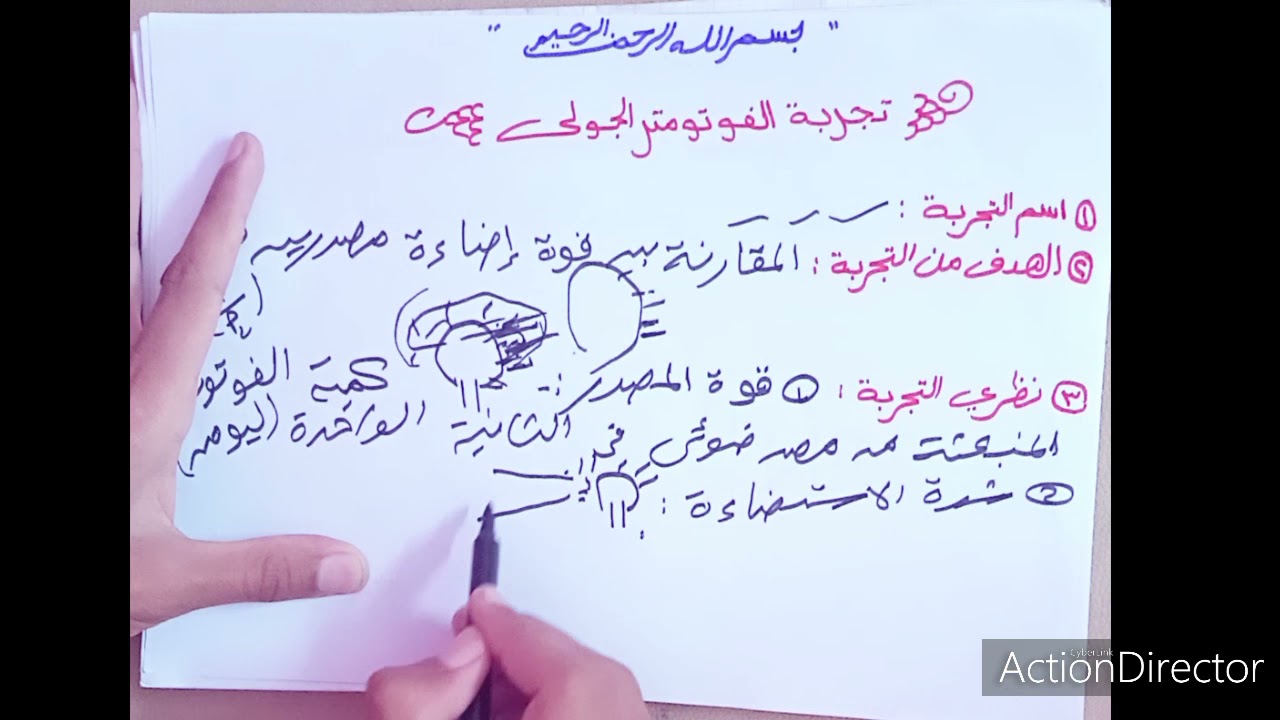 " بسم الله الرحمن الرحيم "
تجربة الفوتومتر الجولى
① اسم التجربة :
② الهدف من التجربة : المقارنة بين قوة إضاءة مصدرين
③ نظري التجربة : ① قوة المصدر :- كمية
المنبعثة من مصدر ضوئى في الثانية الواحدة (ليومن)
② شدة الاستضاءة :
CyberLink
ActionDirector